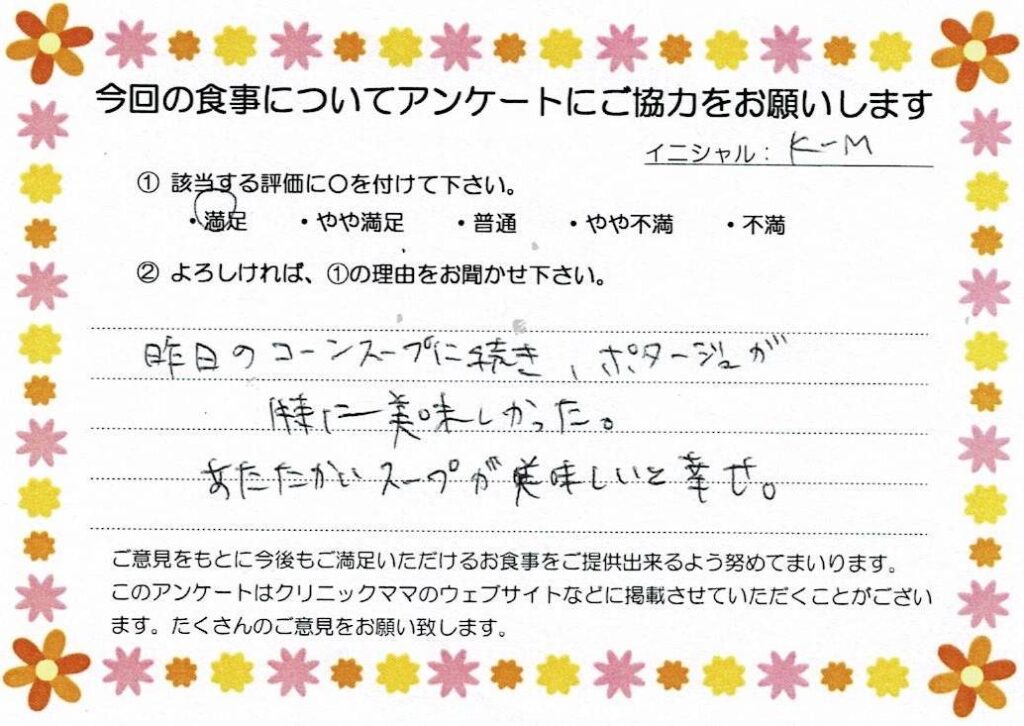 今回の食事についてアンケートにご協力をお願いします
イニシャル： K-M
① 該当する評価に〇を付けて下さい。
・満足 ・やや満足 ・普通 ・やや不満 ・不満
② よろしければ、①の理由をお聞かせ下さい。
昨日のコーンスープに続き、ポタージュが
特に美味しかった。
あたたかいスープが美味しいと幸せ。
ご意見をもとに今後もご満足いただけるお食事をご提供出来るよう努めてまいります。
このアンケートはクリニックママのウェブサイトなどに掲載させていただくことがござい
ます。たくさんのご意見をお願い致します。